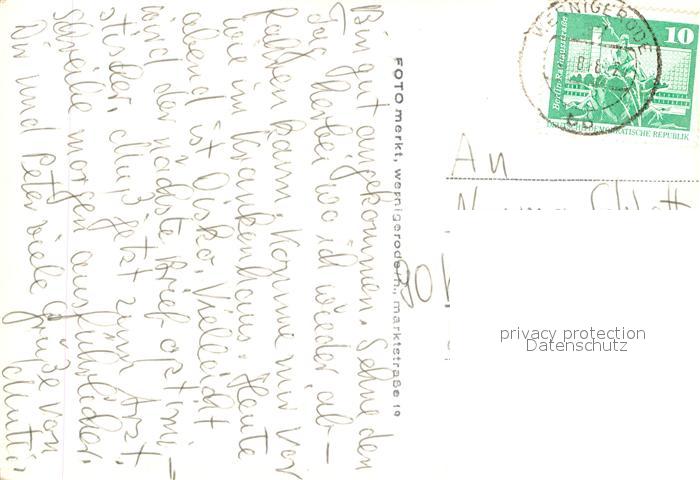 Bin gut angekommen. Sehne den
Tag herbei, wo ich wieder ab-
fahren kann. Komme mir vor
wie im Krankenhaus. Heute
abend ist Disko. Vielleicht
wird der nächste Brief optimi-
stischer. Muß jetzt zum Arzt.
Schreibe morgen ausführlicher.
Dir und Peter viele Grüße von
Mutti
FOTO merkt, wernigerode/h., marktstraße 19
WERNIGERODE
10
Berlin, Rathausstraße
DEUTSCHE DEMOKRATISCHE REPUBLIK
An
privacy protection
Datenschutz